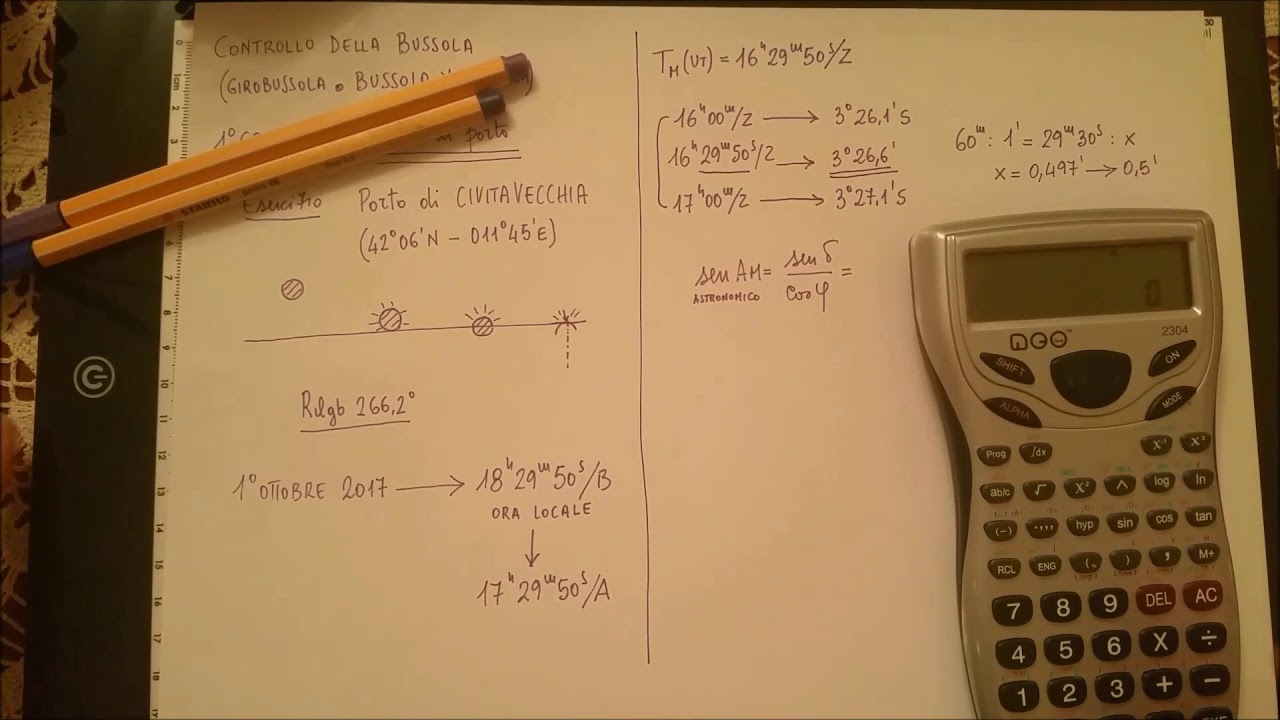 CONTROLLO DELLA BUSSOLA
(GIROBUSSOLA o BUSSOLA
1° in porto
Esercizio Porto di CIVITAVECCHIA
(42°06'N – 011°45'E)
Rilgb 266,2°
1° OTTOBRE 2017 → 18ʰ29ᵐ50ˢ/B
ORA LOCALE
↓
17ʰ29ᵐ50ˢ/A
STABILO
Tₘ(UT) = 16ʰ29ᵐ50ˢ/Z
16ʰ00ᵐ/Z → 3°26,1'S
16ʰ29ᵐ50ˢ/Z → 3°26,6'
17ʰ00ᵐ/Z → 3°27,1'S
60ᵐ : 1' = 29ᵐ30ˢ : x
x = 0,497' → 0,5'
sen AM = sen δ / cos φ =
ASTRONOMICO
0
neo™
2304
SHIFT ON
ALPHA MODE
Prog ∫dx X⁻¹ X³
ab/c √ X² ^ log ln
(–) hyp sin cos tan
RCL ENG ( ) , M+
7 8 9 DEL AC
4 5 6 X ÷
1 2 3 + −
0
1cm
2
3
6
7
8
9
10
11
12
13
14
15
16
17
18
30